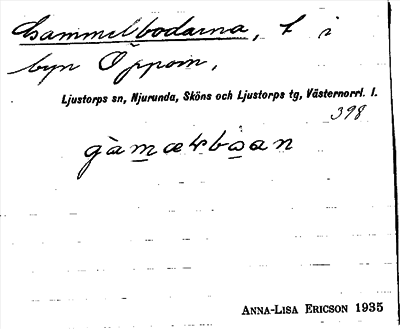 Gammelbodarna, t i
byn Öppom,
Ljustorps sn, Njurunda, Sköns och Ljustorps tg, Västernorrl. l.
398
ANNA-LISA ERICSON 1935